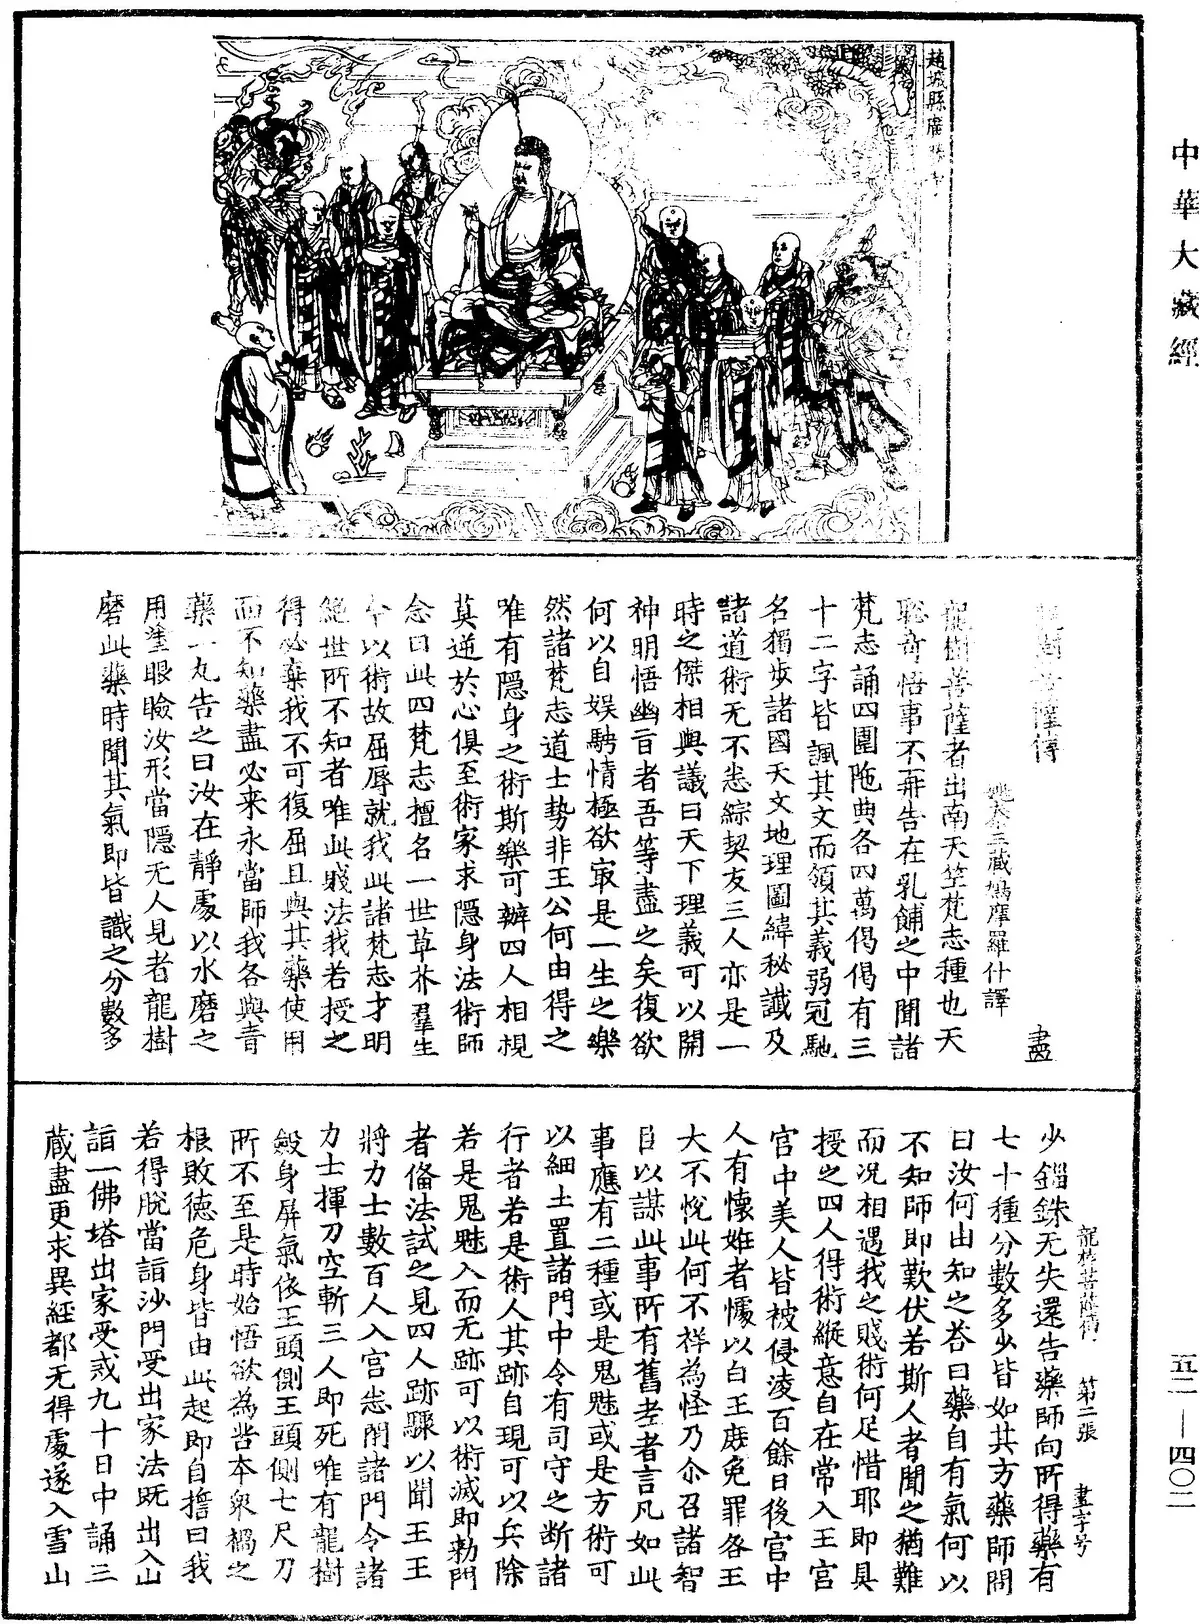 中華大藏經
趙城縣廣
龍樹菩薩傳
盡
姚秦三藏鳩摩羅什譯
龍樹菩薩者出南天竺梵志種也天
聡奇悟事不再告在乳餔之中聞諸
梵志誦四圍陁典各四萬偈偈有三
十二字皆諷其文而領其義弱冠馳
名獨步諸國天文地理圖緯秘讖及
諸道術无不悉綜契友三人亦是一
時之傑相與議曰天下理義可以開
神明悟幽旨者吾等盡之矣復欲
何以自娱騁情極欲㝡是一生之樂
然諸梵志道士勢非王公何由得之
唯有隠身之術斯樂可辦四人相視
莫逆於心俱至術家求隠身法術師
念曰此四梵志擅名一世草芥羣生
今以術故屈辱就我此諸梵志才明
絶世所不知者唯此賤法我若授之
得必棄我不可復屈且與其藥使用
而不知藥盡必来永當師我各與青
藥一丸告之曰汝在靜處以水磨之
用塗眼瞼汝形當隠无人見者龍樹
磨此藥時聞其氣即皆識之分數多
龍樹菩薩傳　第二張　盡字号
少錙銖无失還告藥師向所得藥有
七十種分數多少皆如其方藥師問
曰汝何由知之荅曰藥自有氣何以
不知師即歎伏若斯人者聞之猶難
而況相遇我之賤術何足惜耶即具
授之四人得術縱意自在常入王宮
宮中美人皆被侵淩百餘日後宮中
人有懷姙者懅以白王庶免罪各王
大不悅此何不祥為怪乃尒召諸智
臣以謀此事所有舊老者言凡如此
事應有二種或是鬼魅或是方術可
以細土置諸門中令有司守之断諸
行者若是術人其跡自現可以兵除
若是鬼魅入而无跡可以術滅即勑門
者俻法試之見四人跡驟以聞王王
將力士數百人入宮悉閇諸門令諸
力士揮刀空斬三人即死唯有龍樹
斂身屏氣依王頭側王頭側七尺刀
所不至是時始悟欲為苦本衆禍之
根敗德危身皆由此起即自誓曰我
若得脫當詣沙門受出家法既出入山
詣一佛塔出家受戒九十日中誦三
蔵盡更求異經都无得處遂入雪山
五二—四〇二